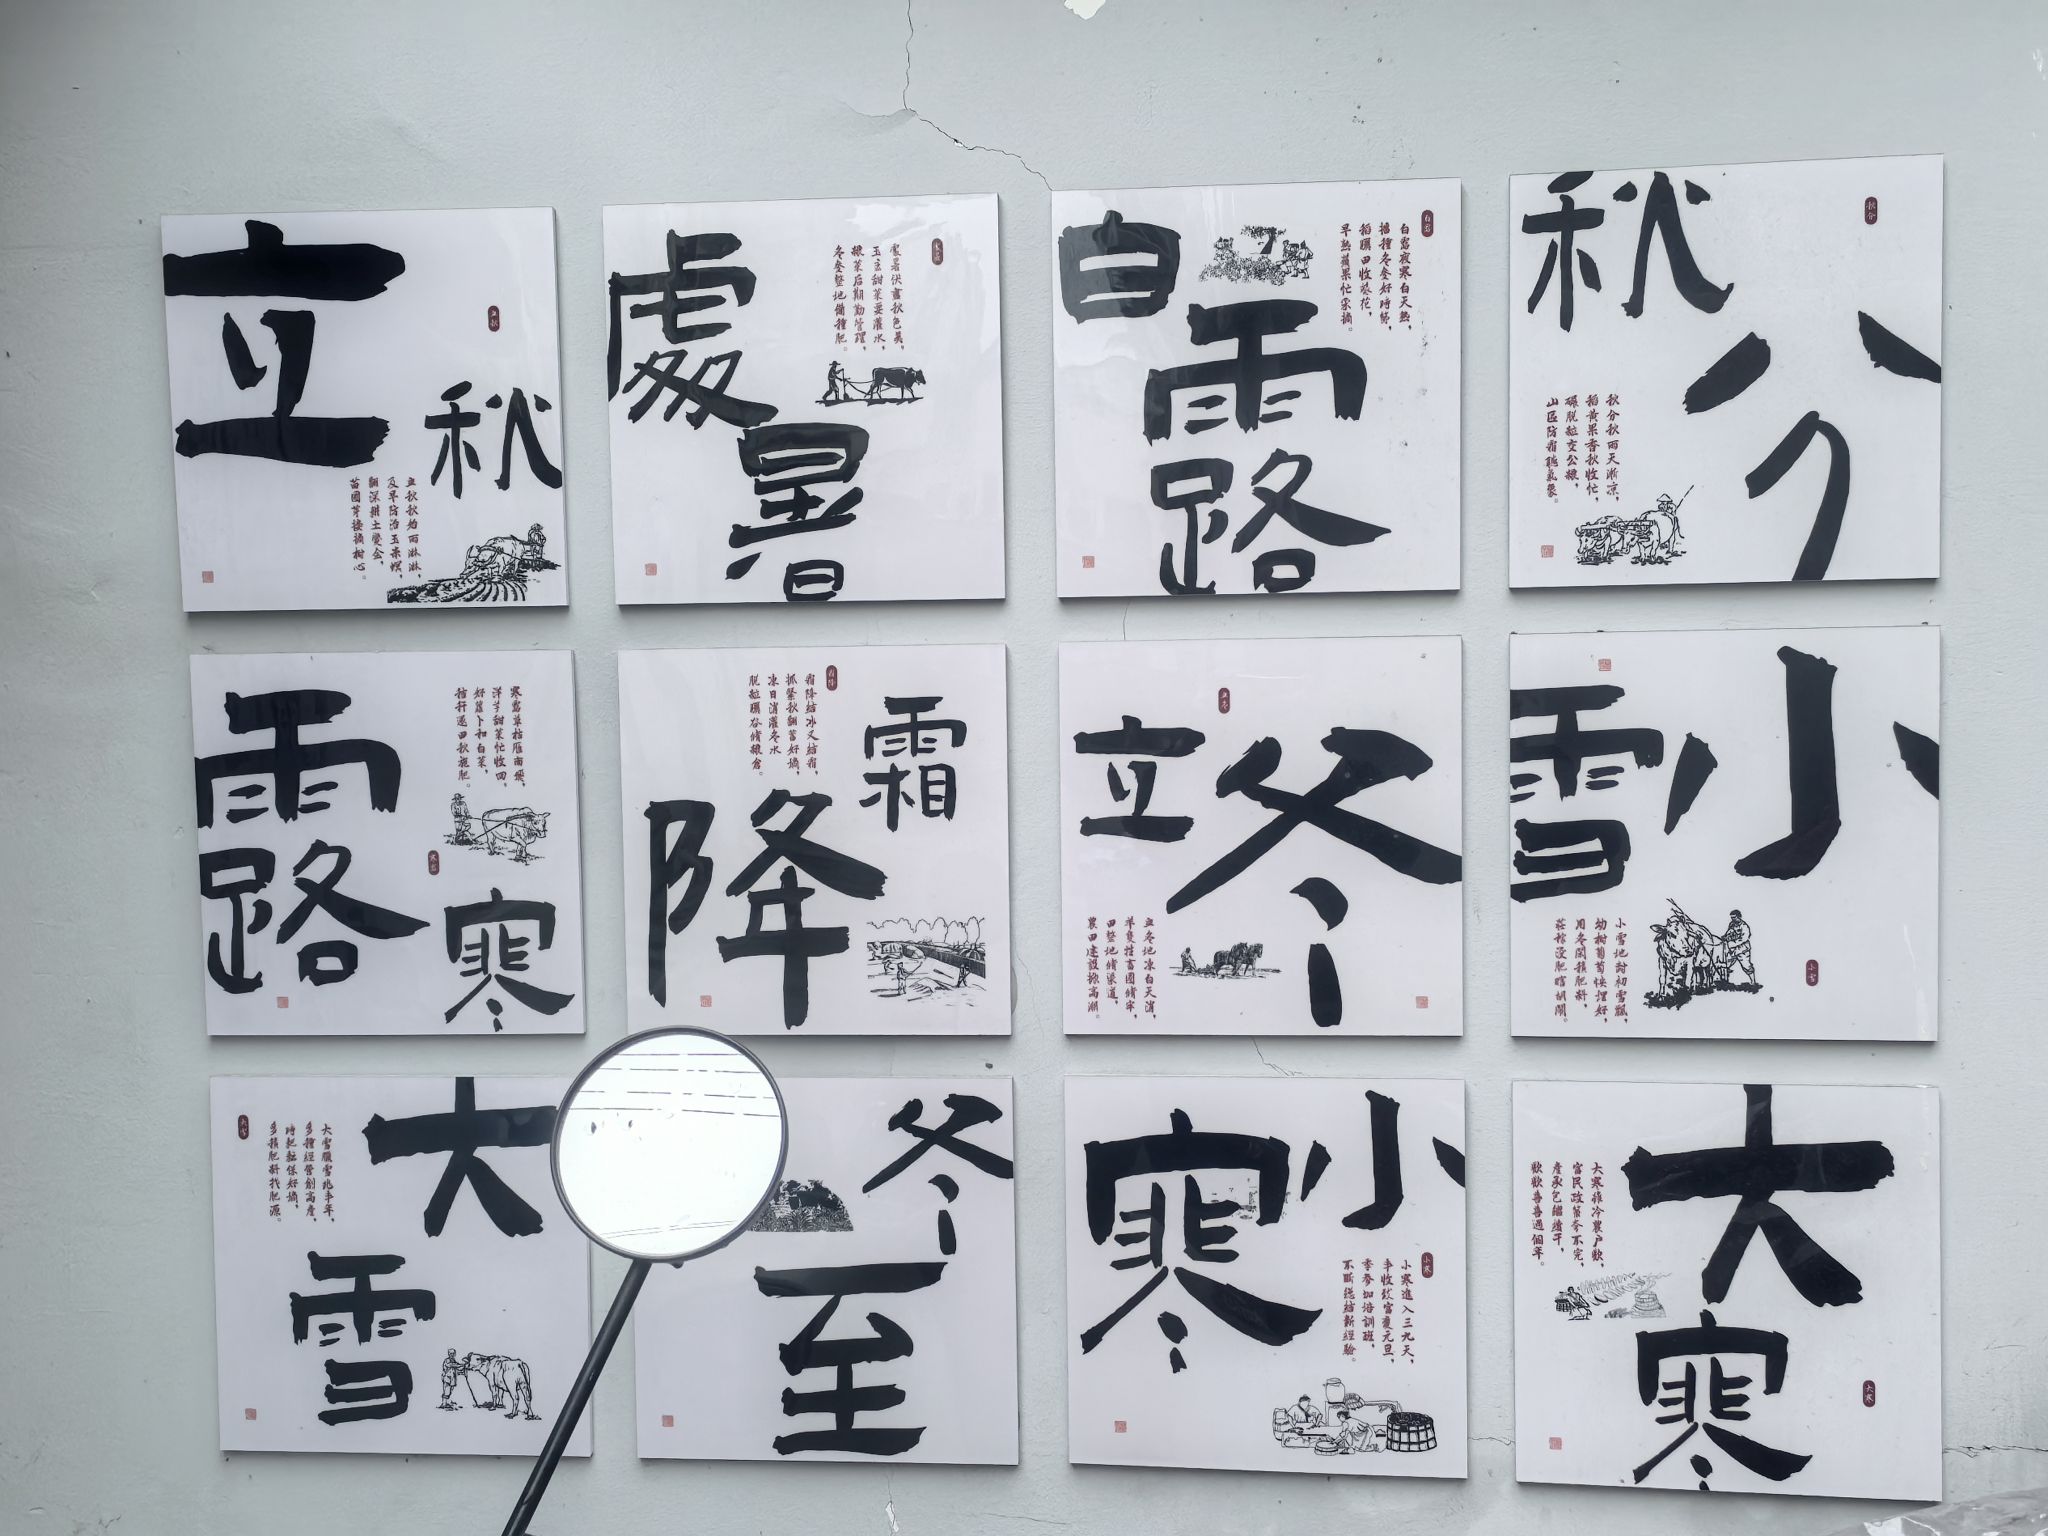 立秋
立秋
立秋秋始雨淋淋，
及早防治玉米螟，
翻深耕土變金，
苗圃芽接摘樹心。
處暑
處暑
處暑伏盡秋色美，
玉主甜菜要灌水，
糧菜后期勤管理，
冬麥整地備種肥。
白露
白露
白露夜寒白天熱，
播種冬麥好時節，
稻曬田收葵花，
早熟蘋果忙采摘。
秋分
秋分
秋分秋雨天漸涼，
稻黃果香秋收忙，
碾脫粒交公糧，
山區防霜聽氣象。
寒露
寒露
寒露草枯雁南飛，
洋芋甜菜忙收回，
好蘿卜和白菜，
秸稈還田秋施肥。
霜降
霜降
霜降結冰又結霜，
抓緊秋翻蓄好墑，
凍日消灌冬水
脫粒曬谷修糧倉。
立冬
立冬
立冬地凍白天消，
羊隻牲畜圈修牢，
田整地修渠道，
農田建設掀高潮。
小雪
小雪
小雪地封初雪飄，
幼樹葡萄快埋好，
用冬閑積肥料，
莊稼沒肥瞎胡鬧。
大雪
大雪
大雪臘雪兆丰年，
多種經營創高產，
時耙耱保好墑，
多積肥料找肥源。
冬至
小寒
小寒
小寒進入三九天，
丰收致富慶元旦，
季參加培訓班，
不斷總結新經驗。
大寒
大寒
大寒雖冷農户歡，
富民政策夸不完，
產承包繼續干，
歡歡喜喜過個年。